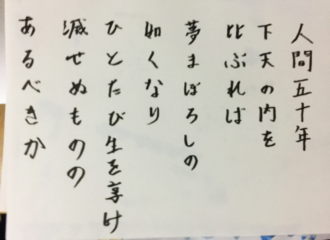 人間五十年
下天の内を
比ぶれば
夢まぼろしの
如くなり
ひとたび生を享け
滅せぬものの
あるべきか